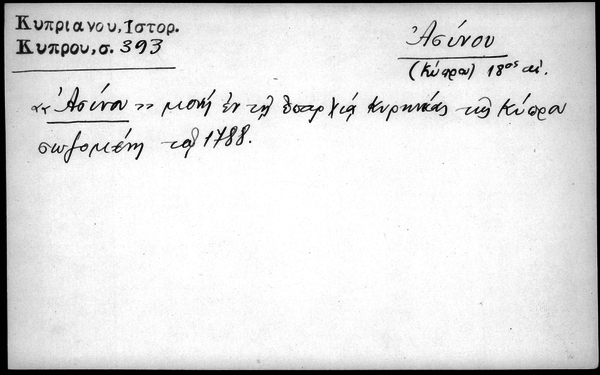 Κυπριανου, Ιστορ.
Κυπρου, σ. 393
Ἀσίνου
(Κύπρου) 18ος αἰ.
«Ἀσίνου» μονή ἐν τῇ ἐπαρχίᾳ Κυρηνείας τῆς Κύπρου
σωζομένη τῷ 1788.